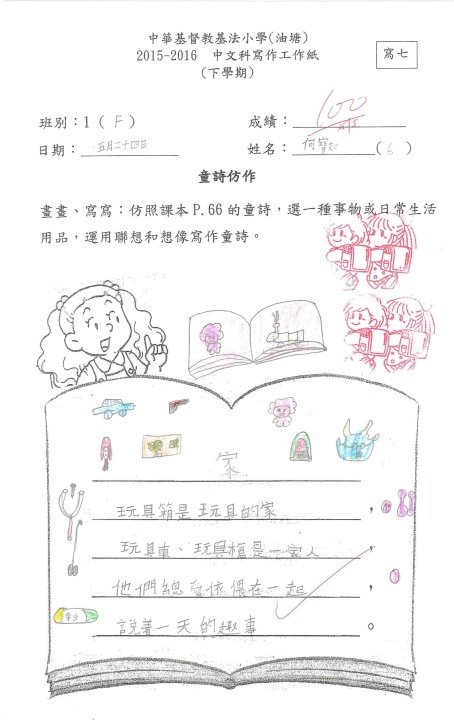 中華基督教基法小學(油塘)
2015-2016 中文科寫作工作紙
(下學期)
寫七
班別：1 ( F )
成績：100
日期：五月二十四日
姓名：何寶 ( 6 )
童詩仿作
畫畫、寫寫：仿照課本 P.66 的童詩，選一種事物或日常生活
用品，運用聯想和想像寫作童詩。
家
玩具箱是玩具的家，
玩具車、玩具槍是一家人，
他們總愛依偎在一起，
說着一天的趣事。